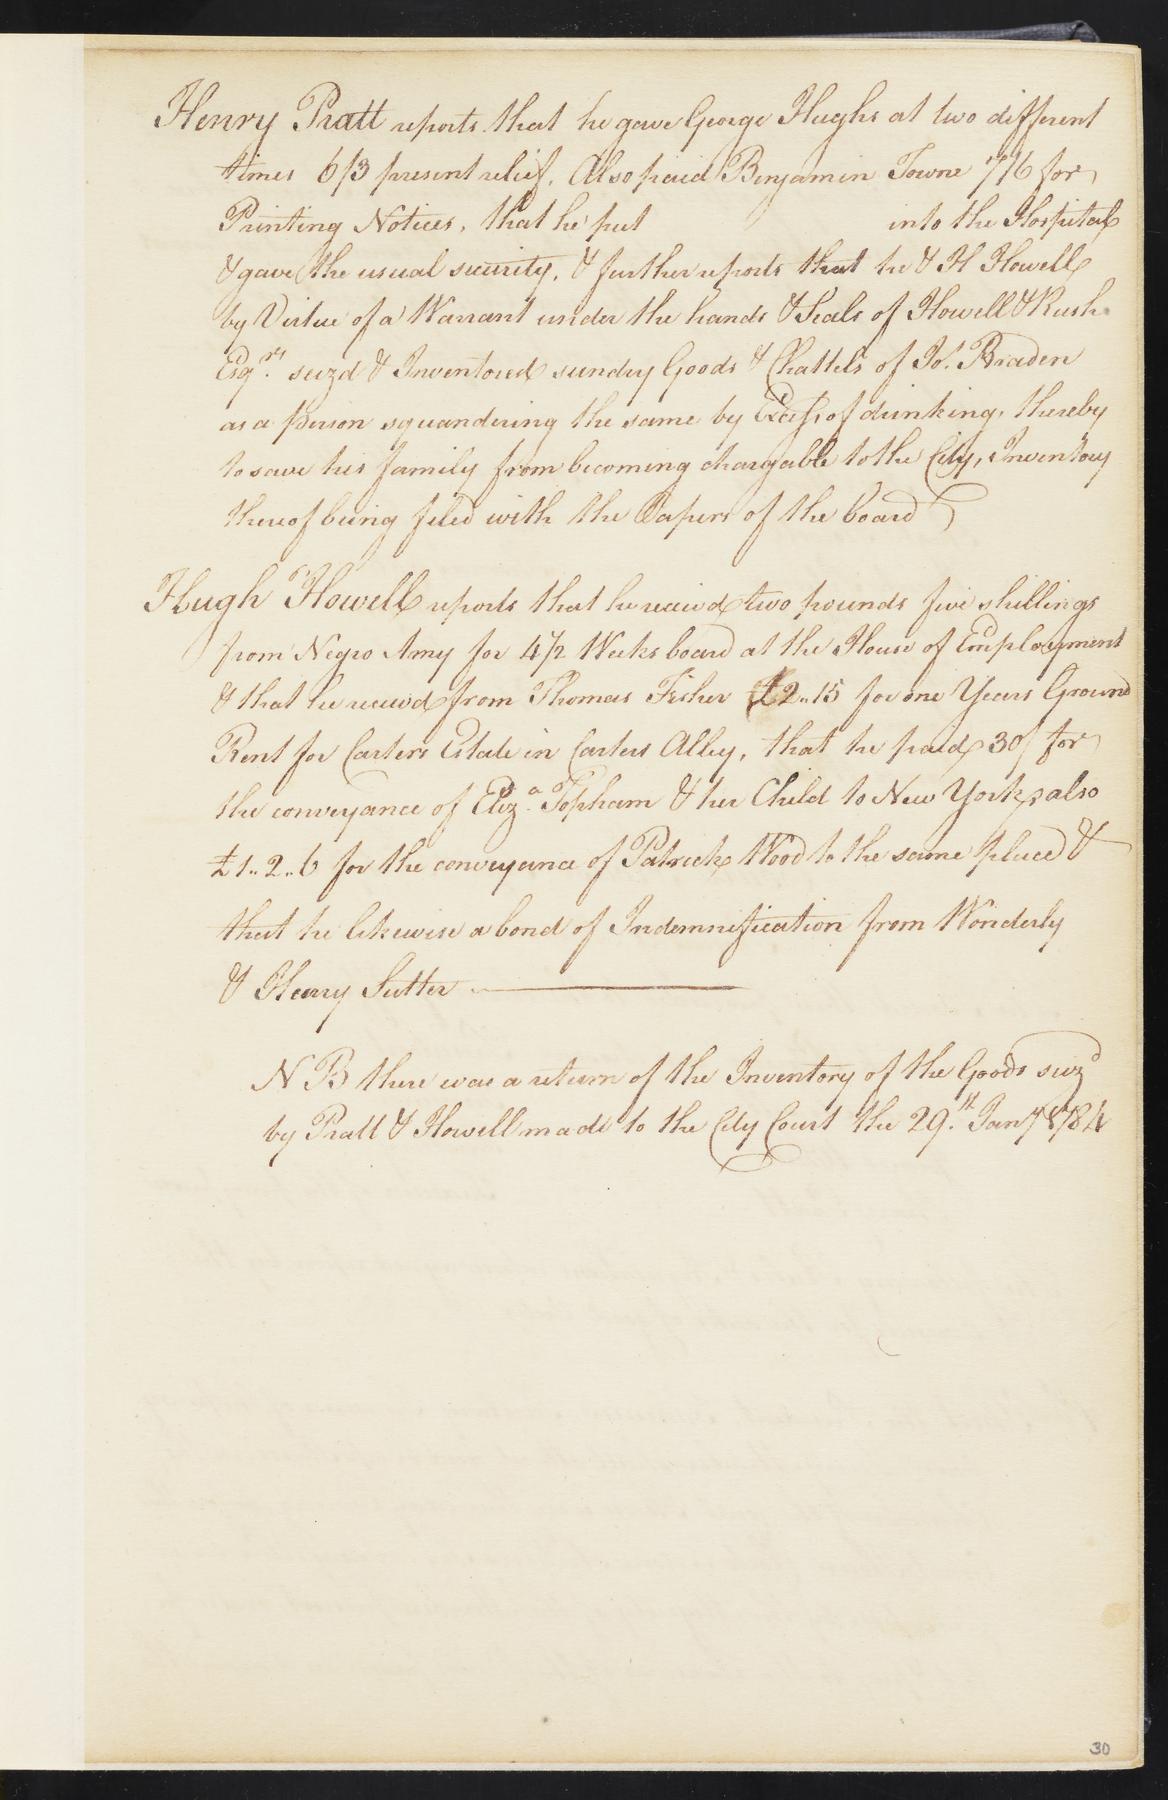 Henry Pratt reports that he gave George Hughs at two different
times 6/3 present relief. Also paid Benjamin Towne 7/6 for
Printing Notices, that he put into the Hospital
& gave the usual security, & further reports that he & H Howell
by Virtue of a Warrant under the hands & Seals of Howell & Rush
Esqrs. seizd & Inventored sundry Goods & Chattels of Jo. Braden
as a person squandering the same by Excess of drinking, thereby
to save his family from becoming chargable to the City, Inventory
thereof being filed with the Papers of the board
Hugh Howell reports that he receivd two pounds five shillings
from Negro Amy for 4 1/2 Weeks board at the House of Employment
& that he receivd from Thomas Fisher £2..15 for one Years Ground
Rent for Carters Estate in Carters Alley, that he paid 30/ for
the conveyance of Eliza. Topham & her Child to New York, also
£1..2..6 for the conveyance of Patrick Wood to the same place &
that he likewise a bond of Indemnification from Wonderly
& Henry Sutter
N B there was a return of the Inventory of the Goods seizd
by Pratt & Howell made to the City Court the 29.th Jany 1784
30